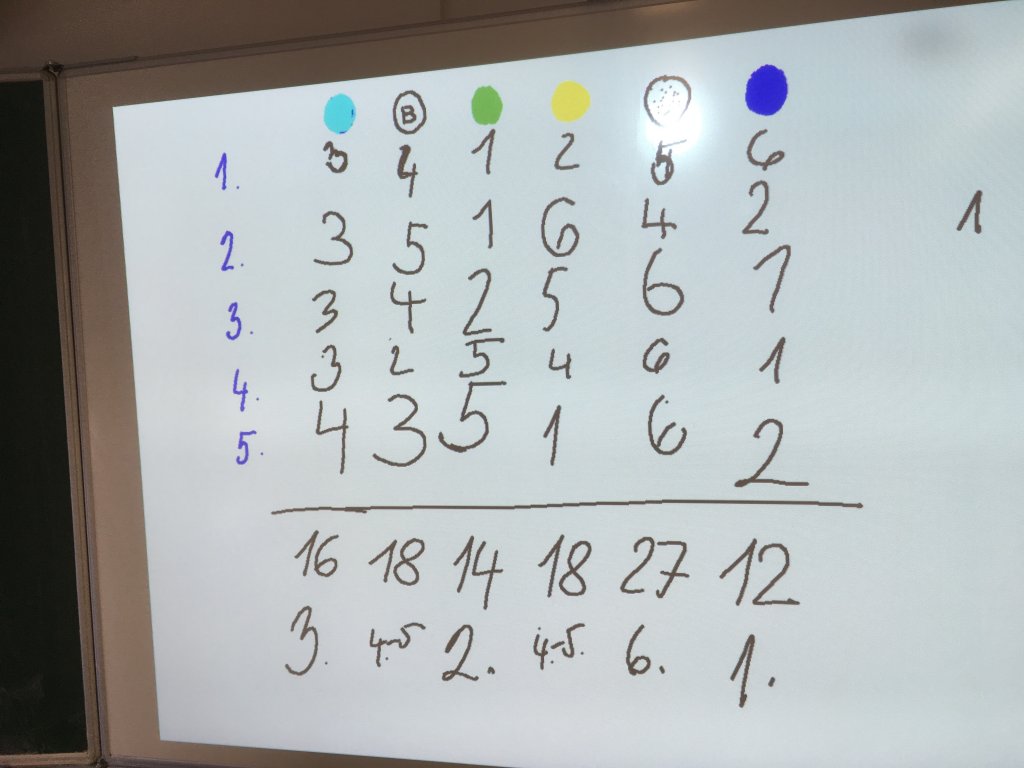 B
1. 3 4 1 2 5 6
2. 3 5 1 6 4 2 1
3. 3 4 2 5 6 1
4. 3 2 5 4 6 1
5. 4 3 5 1 6 2
16 18 14 18 27 12
3. 4.-5 2. 4.-5. 6. 1.